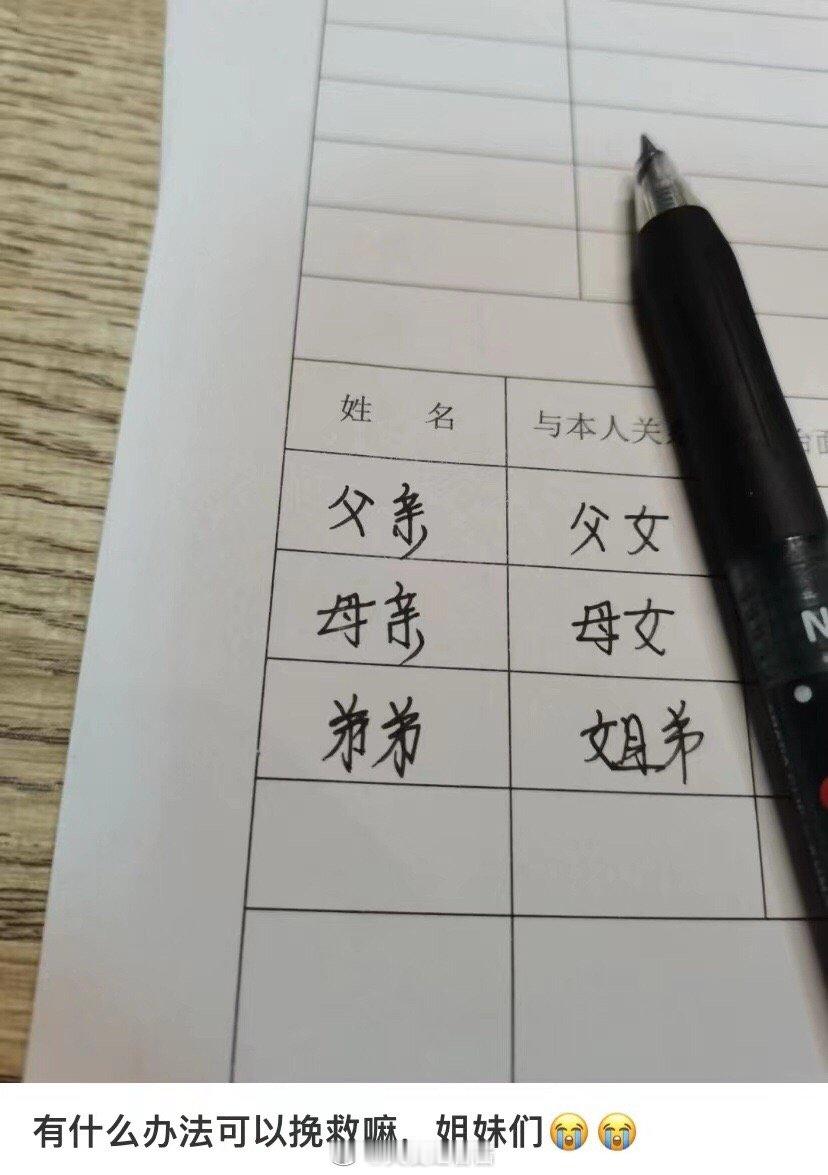 姓 名 与本人关
父亲 父女
母亲 母女
弟弟 姐弟
N
有什么办法可以挽救嘛，姐妹们😭😭